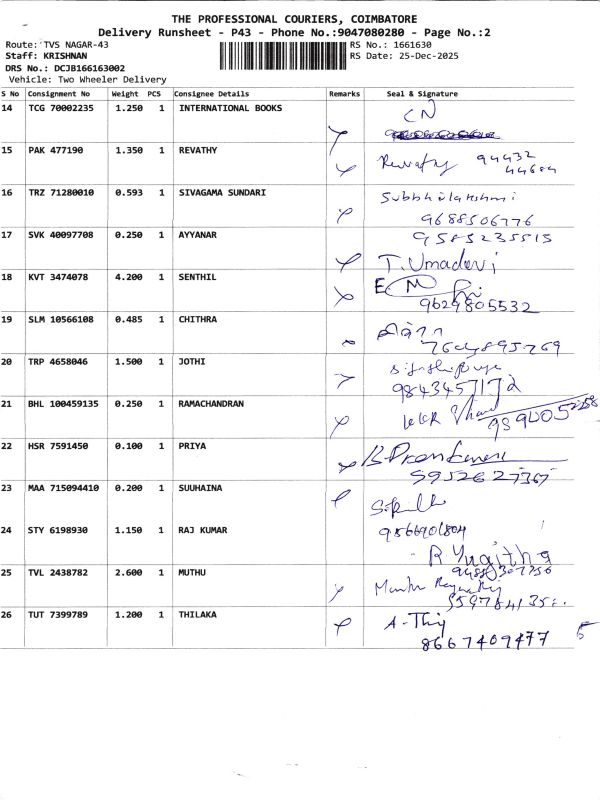 THE PROFESSIONAL COURIERS, COIMBATORE
Delivery Runsheet - P43 - Phone No.:9047080280 - Page No.:2
Route: TVS NAGAR-43
RS No.: 1661630
Staff: KRISHNAN
RS Date: 25-Dec-2025
DRS No.: DCJB166163002
Vehicle: Two Wheeler Delivery
S No Consignment No Weight PCS Consignee Details Remarks Seal & Signature
14 TCG 70002235 1.250 1 INTERNATIONAL BOOKS CN
15 PAK 477190 1.350 1 REVATHY Revathy 94432
44684
16 TRZ 71280010 0.593 1 SIVAGAMA SUNDARI Subbhulakshmi
9688506776
17 SVK 40097708 0.250 1 AYYANAR 9585235515
T. Umadevi
18 KVT 3474078 4.200 1 SENTHIL
9629805532
19 SLM 10566108 0.485 1 CHITHRA
20 TRP 4658046 1.500 1 JOTHI
9843457172
21 BHL 100459135 0.250 1 RAMACHANDRAN
22 HSR 7591450 0.100 1 PRIYA
23 MAA 715094410 0.200 1 SUUHAINA
24 STY 6198930 1.150 1 RAJ KUMAR 9566901804
25 TVL 2438782 2.600 1 MUTHU
26 TUT 7399789 1.200 1 THILAKA
8667409477